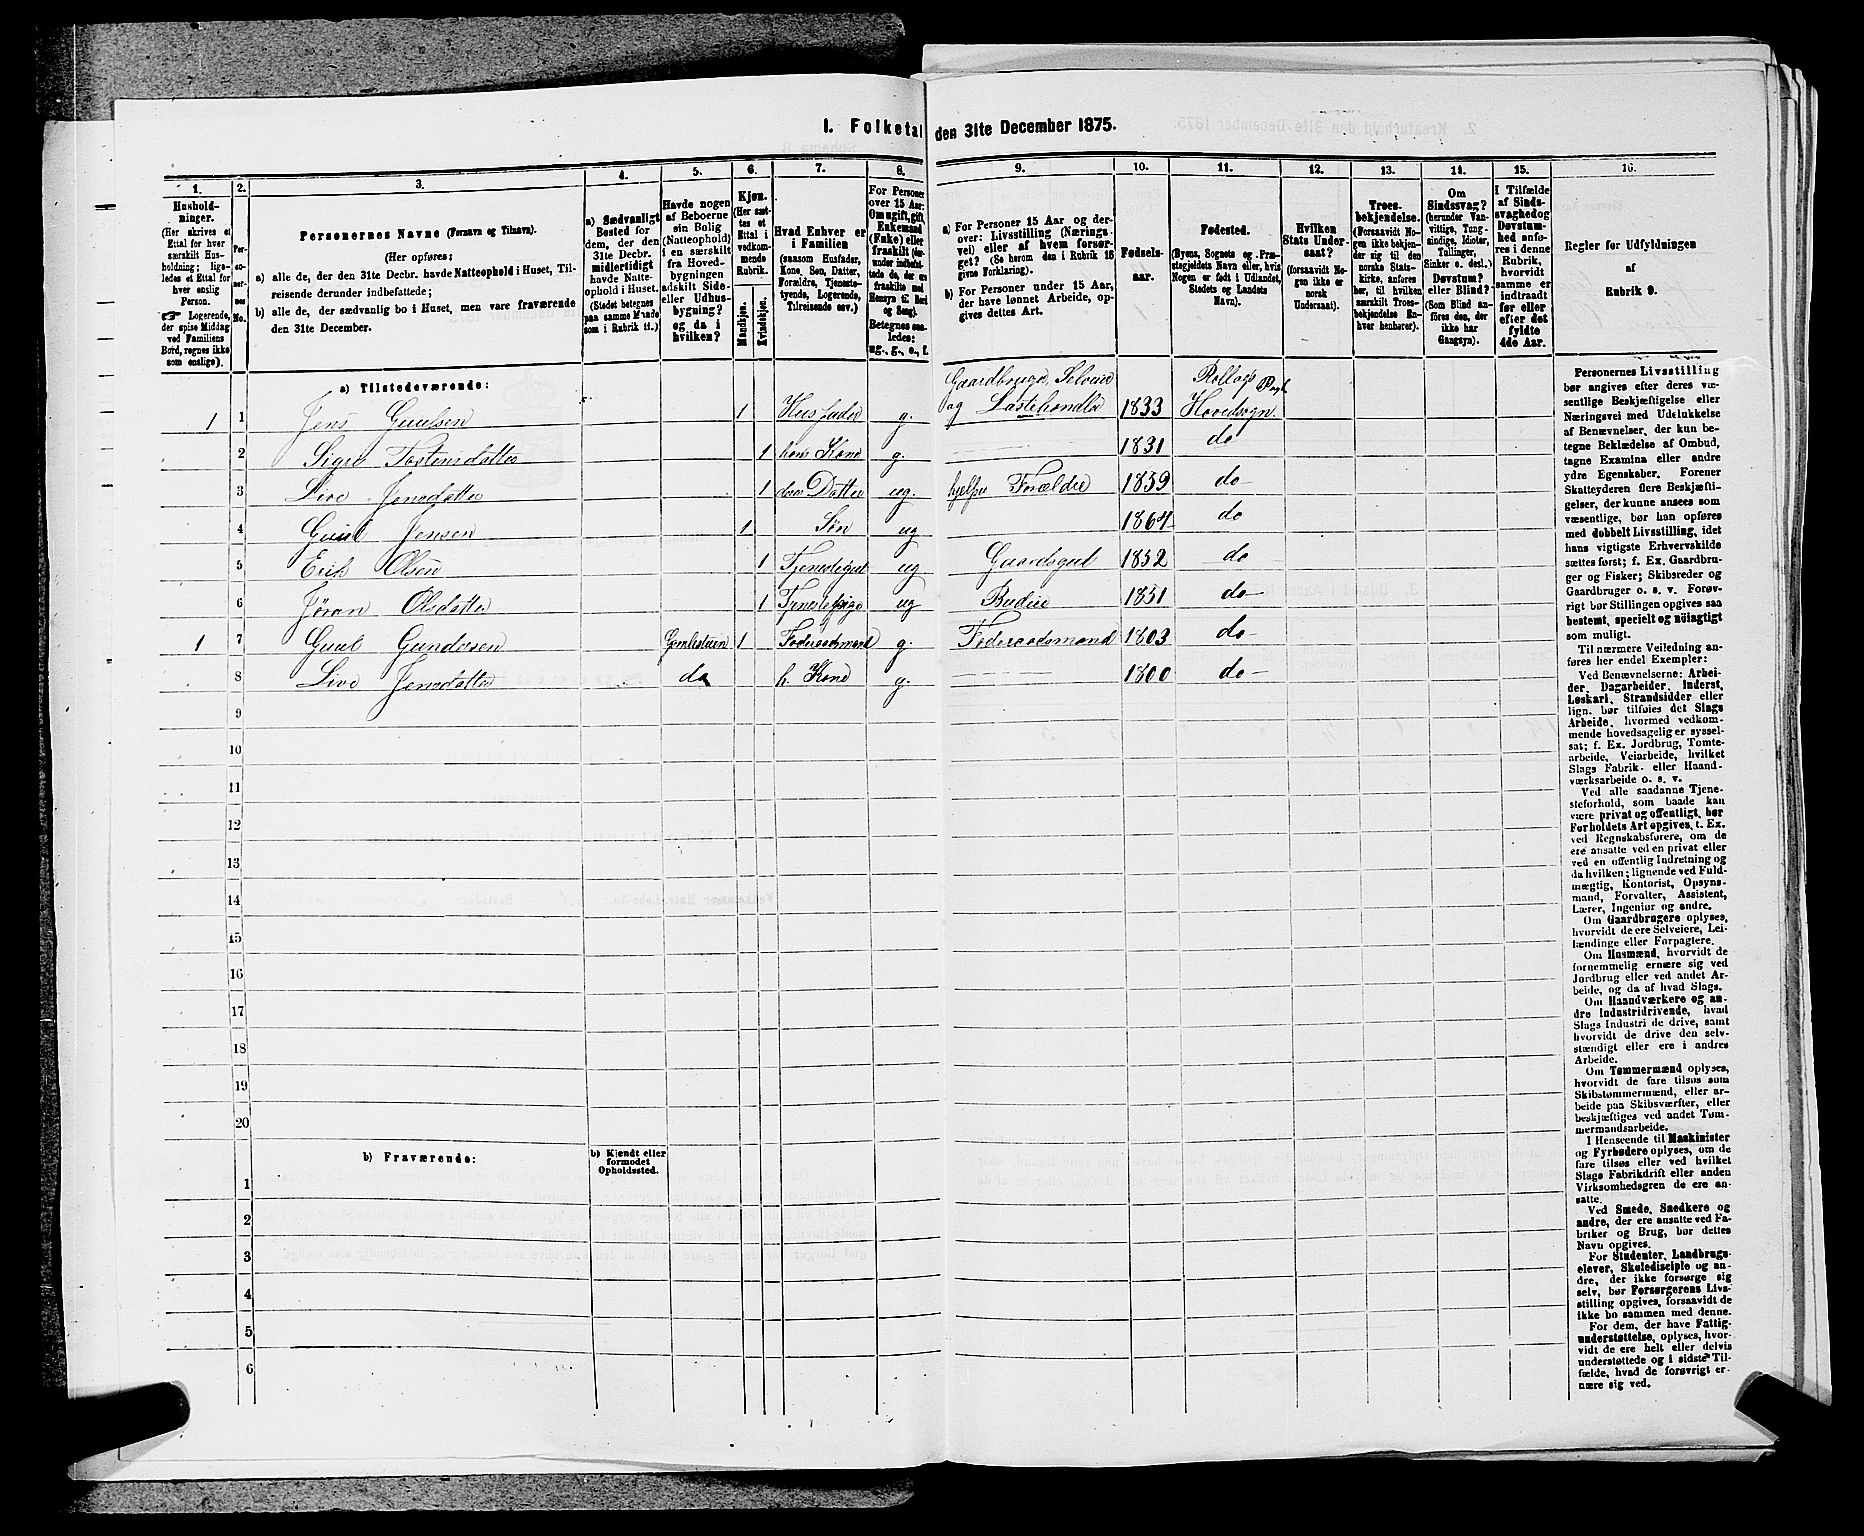 1. Folketal den 31te December 1875.
1.
2.
3.
4.
5.
6.
7.
8.
9.
10.
11.
12.
13.
14.
15.
16.
Hushold-
ninger.
(Her skrives et
Ettal for hver
særskilt Hus-
holdning; lige-
ledes et Ettal for
hver enslig
Person.
☞ Logerende,
der spise Middag
ved Familiens
Bord, regnes ikke
som enslige).
Per-
so-
ner-
nes
No.
Personernes Navne (Fornavn og Tilnavn).
(Her opføres:
a) alle de, der den 31te Decbr. havde Natteophold i Huset, Til-
reisende derunder indbefattede;
b) alle de, der sædvanlig bo i Huset, men vare fraværende
den 31te December.
a) Sædvanligt
Bosted for
dem, der den
31te Decbr.
midlertidigt
havde Natte-
ophold i Huset.
(Stedet betegnes
paa samme Maade
som i Rubrik 11.)
Havde nogen
af Beboerne
sin Bolig
(Natteophold)
i en særskilt
fra Hoved-
bygningen
adskilt Side-
eller Udhus-
bygning?
og da i
hvilken?
Kjøn.
(Her sæt-
tes et
Ettal i
vedkom-
mende
Rubrik.
Mandkjøn.
Kvindekjøn.
Hvad Enhver er
i Familien
(saasom Husfader,
Kone, Søn, Datter,
Forældre, Tjeneste-
tyende, Logerende,
Tilreisende osv.)
For Personer
over 15 Aar:
Om ugift, gift,
Enkemand
(Enke) eller
fraskilt (der-
under indbefat-
tede de, der ere
fraskilte med
Hensyn til Bord
og Seng).
Betegnes saa-
ledes:
ug., g., e., f.
a) For Personer 15 Aar og der-
over: Livsstilling (Nærings-
vei) eller af hvem forsør-
get? (Se herom den i Rubrik 16
givne Forklaring).
b) For Personer under 15 Aar,
der have lønnet Arbeide, op-
gives dettes Art.
Fødsels-
aar.
Fødested.
(Byens, Sognets og Præ-
stegjeldets Navn eller, hvis
Nogen er født i Udlandet,
Stedets og Landets
Navn).
Hvilken
Stats Under-
saat?
(forsaavidt No-
gen ikke er
norsk
Undersaat).
Troes-
bekjendelse.
(Forsaavidt No-
gen ikke bekjen-
der sig til den
norske Stats-
kirke, anføres
her, til hvilken
særskilt Troes-
bekjendelse En-
hver henhører).
Om
Sindssvag?
(herunder Van-
vittige, Tung-
sindige, Idioter,
Tullinger,
Sinker o. desl.)
Døvstum?
eller Blind?
(Som Blind an-
føres den, der
ikke har
Gangsyn).
I Tilfælde
af Sinds-
svaghed og
Døvstum-
hed anfø-
res i denne
Rubrik,
hvorvidt
samme er
indtraadt
før eller
efter det
fyldte
4de Aar.
Regler for Udfyldningen
af
Rubrik 9.
a) Tilstedeværende:
1 1 Jens Guulsen 1 Husfader g. Gaardbruger, Selveier og Lastehandler 1833 Rollags Pgl. Hovedsogn.
2 Sigri Tostensdatter 1 hans Kone g. 1831 do
3 Live Jensdatter 1 deres Datter ug. hjelper Forældre 1859 do
4 Guul Jensen 1 Søn ug 1864 do
5 Erik Olsen 1 Tjenestegut ug Gaardsgut 1852 do
6 Jøran Olsdatter 1 Tjenestepige ug Budeie 1851 do
1 7 Guul Gundersen Gamlestuen 1 Føderaadsmand g. Føderaadsmand 1803 do
8 Live Jensdatter do h. Kone g. 1800 do
9
10
11
12
13
14
15
16
17
18
19
20
b) Fraværende:
b) Kjendt eller
formodet
Opholdssted.
1
2
3
4
5
6
Personernes Livsstilling
bør angives efter deres væ-
sentlige Beskjæftigelse eller
Næringsvei med Udelukkelse
af Benævnelser, der kun be-
tegne Beklædelse af Ombud,
tagne Examina eller andre
ydre Egenskaber. Forener
Skatteyderen flere Beskjæfti-
gelser, der kunne ansees som
væsentlige, bør han opføres
med dobbelt Livsstilling, idet
hans vigtigste Erhvervskilde
sættes først; f. Ex. Gaardbru-
ger og Fisker; Skibsreder og
Gaardbruger o. s. v. Forøv-
rigt bør Stillingen opgives saa
bestemt, specielt og nøiagtigt
som muligt.
Til nærmere Veiledning an-
føres her endel Exempler:
Ved Benævnelserne: Arbei-
der, Dagarbeider, Inderst,
Løskarl, Strandsidder eller
lign. bør tilføies det Slags
Arbeide, hvormed vedkom-
mende hovedsagelig er syssel-
sat; f. Ex. Jordbrug, Tomte-
arbeide, Veiarbeide, hvilket
Slags Fabrik- eller Haand-
værksarbeide o. s. v.
Ved alle saadanne Tjene-
steforhold, som baade kan
være privat og offentligt, bør
Forholdets Art opgives, t. Ex.
ved Regnskabsførere, om de
ere ansatte ved en privat eller
ved en offentlig Indretning og
da hvilken; lignende ved Fuld-
mægtig, Kontorist, Opsyns-
mand, Forvalter, Assistent,
Lærer, Ingeniør og andre.
Om Gaardbrugere oplyses,
hvorvidt de ere Selveiere, Lei-
lændinge eller Forpagtere.
Om Husmænd, hvorvidt de
fornemmelig ernære sig ved
Jordbrug eller ved andet Ar-
beide, og da af hvad Slags.
Om Haandværkere og an-
dre Industridrivende, hvad
Slags Industri de drive, samt
hvorvidt de drive den selv-
stændigt eller ere i andres
Arbeide.
Om Tømmermænd oplyses,
hvorvidt de fare tilsøs som
Skibstømmermænd, eller ar-
beide paa Skibsværfter, eller
beskjæftiges ved andet Tøm-
mermandsarbeide.
I Henseende til Maskinister
og Fyrbødere oplyses, om de
fare tilsøs eller ved hvilket
Slags Fabrikdrift eller anden
Virksomhedsgren de ere an-
satte.
Ved Smede, Snedkere og
andre, der ere ansatte ved Fa-
briker og Brug, bør dettes
Navn opgives.
For Studenter, Landbrugs-
elever, Skoledisciple og an-
dre, der ikke forsørge sig
selv, bør Forsørgerens Livs-
stilling opgives, forsaavidt de
ikke bo sammen med denne.
For dem, der have Fattig-
understøttelse, oplyses, hvor-
vidt de ere helt eller delvis
understøttede og i sidste Til-
fælde, hvad de forøvrigt er-
nære sig ved.